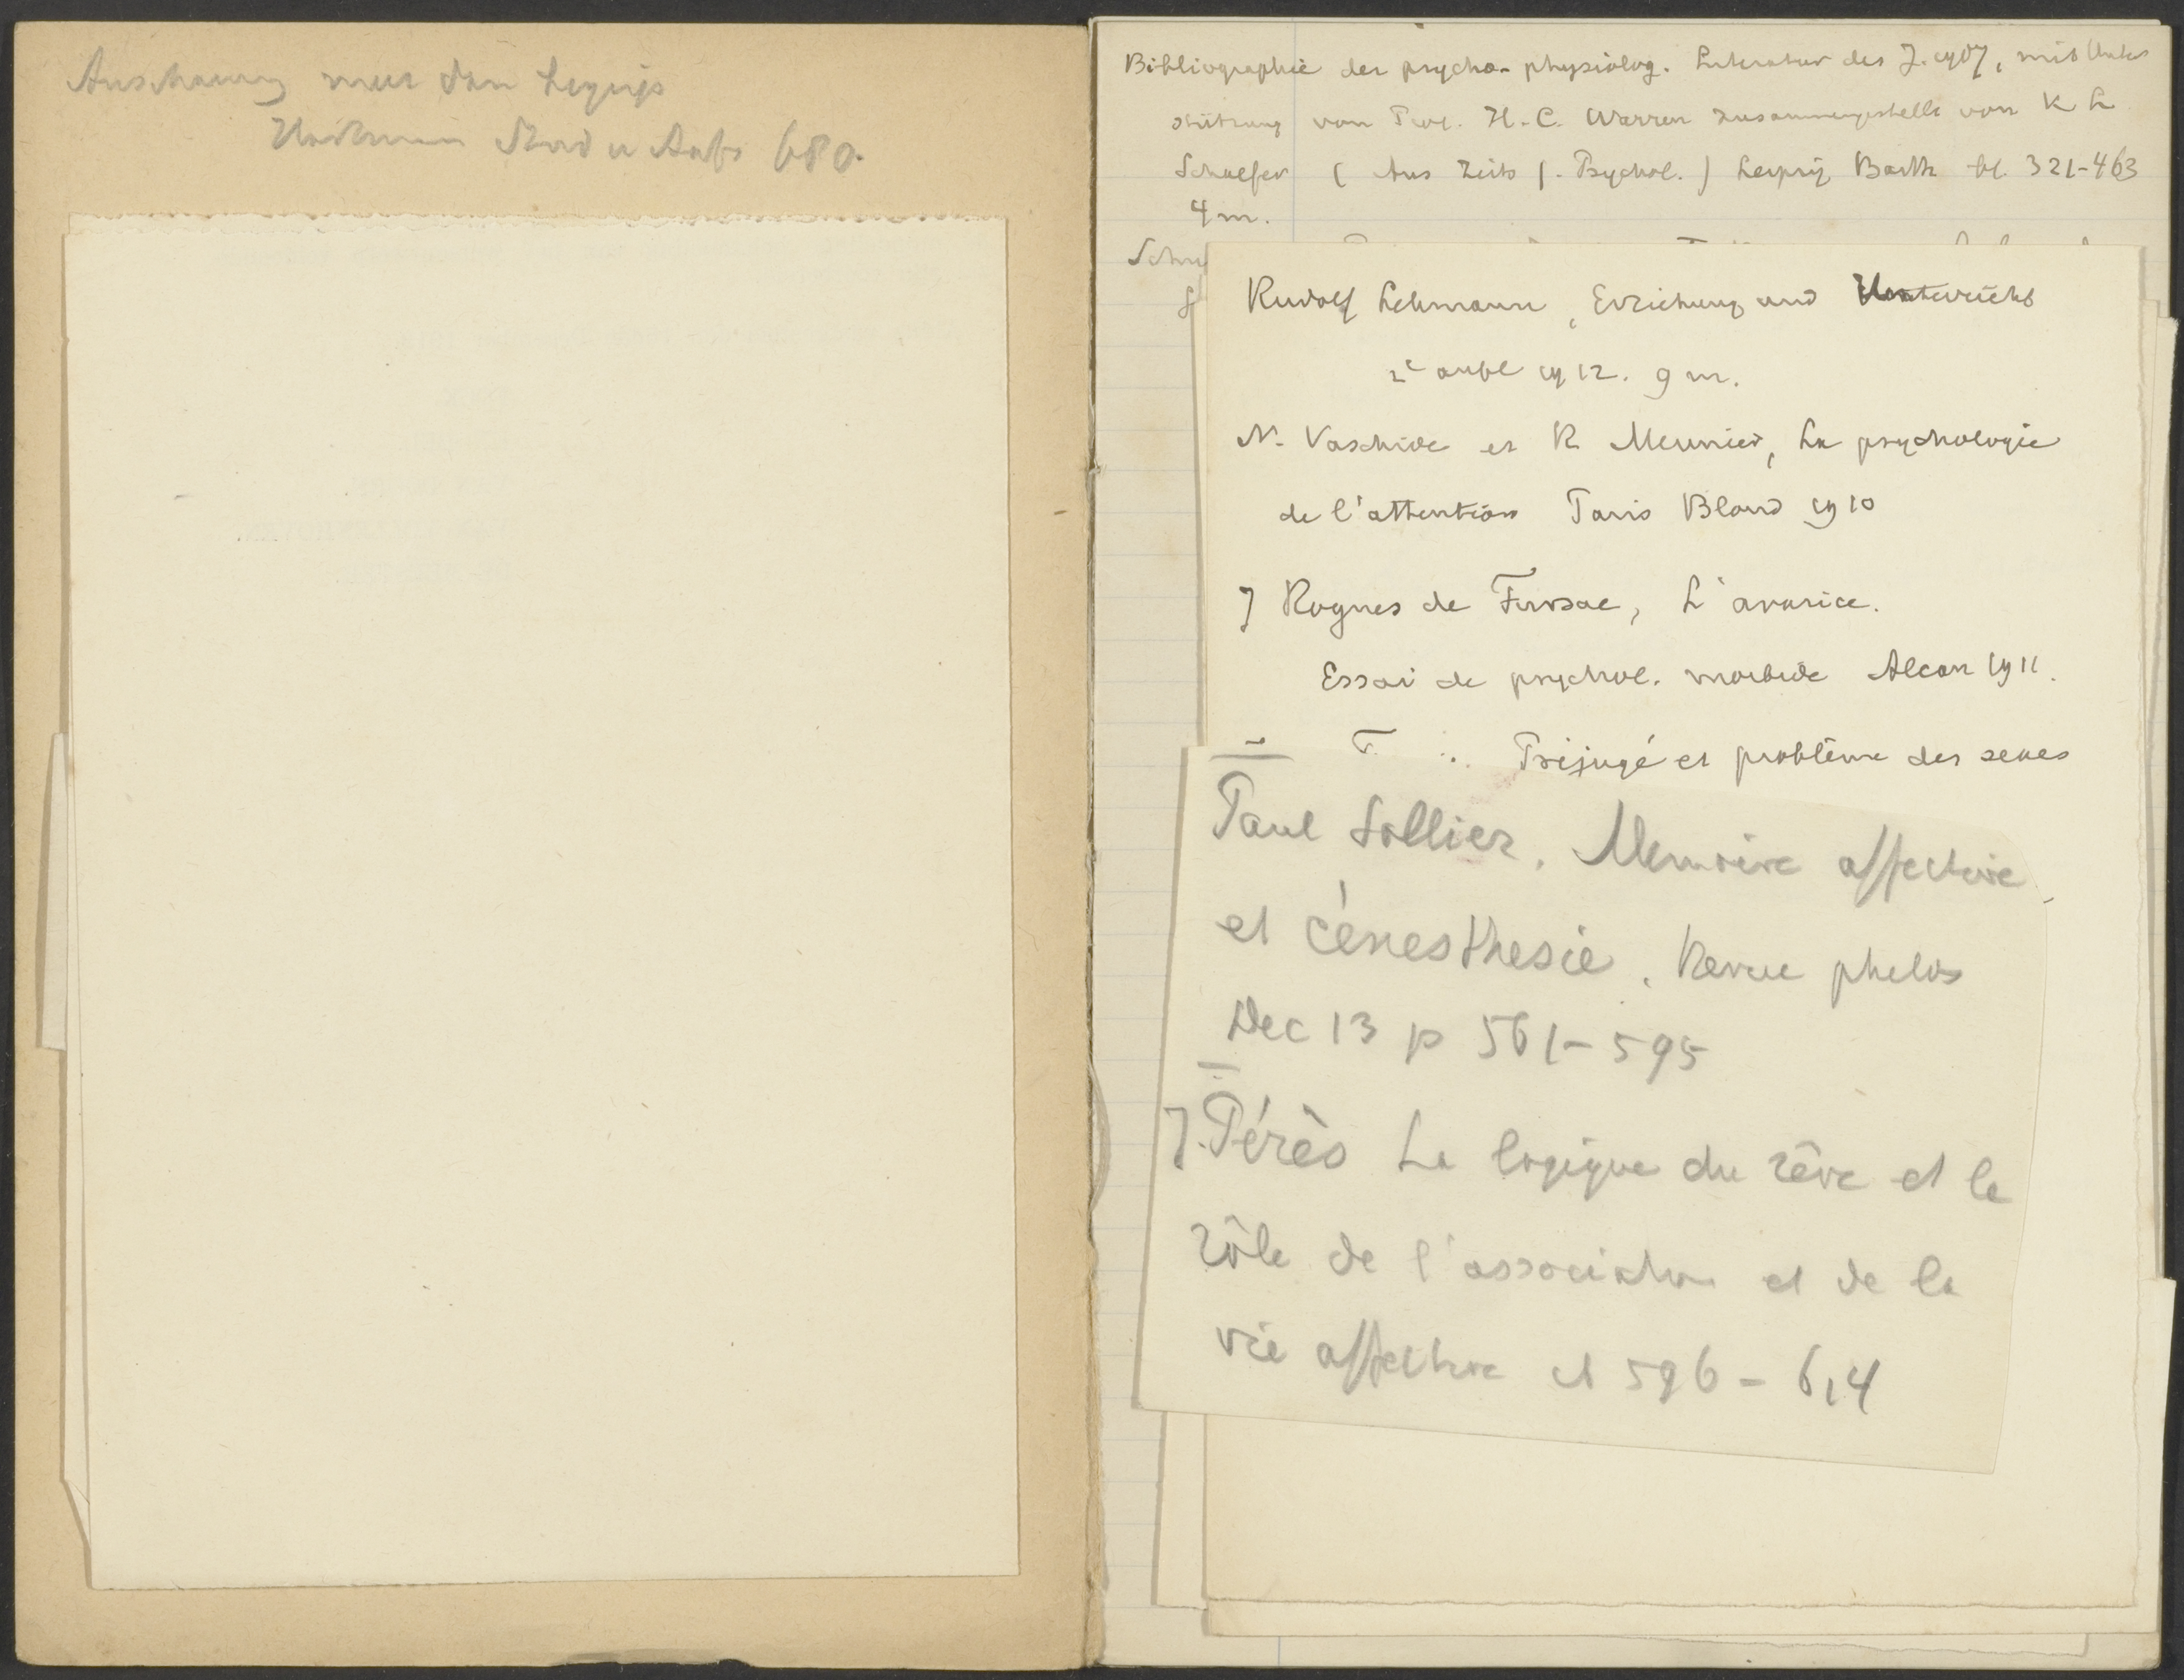 Anschauung meer dan begrip
680.
Bibliographie der psycho-physiolog. Literatur des J. 1907, mit Unter
stützung von Prof. H.C. Warren zusammengestellt von K L
Schaefer (Aus Zeits f. Psychol.) Leipzig Barth bl. 321-463
4 m.
Rudolf Lehmann, Erziehung und Unterricht
2e aufl 1912. 9 m.
N. Vaschide et R Meunier, La psychologie
de l'attention Paris Bloud 1910
J Rogues de Fursac, L'avarice.
Essai de psychol. morbide Alcan 1911.
Préjugé et problème des sexes
Paul Sollier, Memoire affective
et cénesthesie. Revue philos
Dec 13 p 561-595
J. Pérès La logique du rêve et le
rôle de l'association et de la
vie affective 596-614